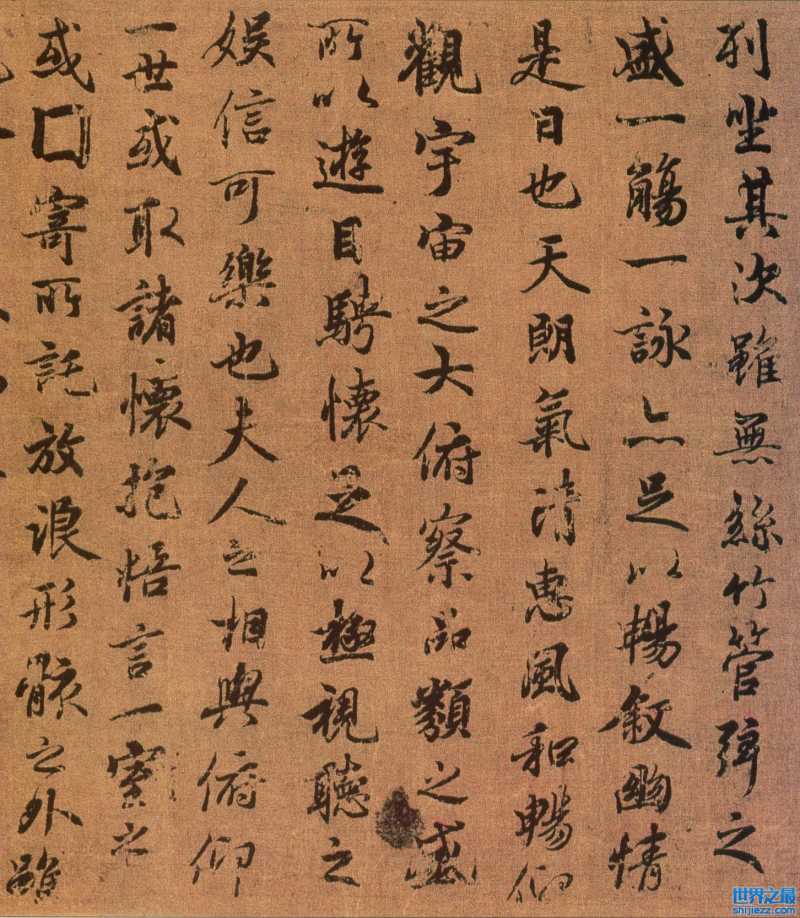 列坐其次雖無絲竹管弦之
盛一觴一詠亦足以暢敘幽情
是日也天朗氣清惠風和暢仰
觀宇宙之大俯察品類之盛
所以遊目騁懷足以極視聽之
娛信可樂也夫人之相與俯仰
一世或取諸懷抱悟言一室之
或囗寄所託放浪形骸之外雖
世界之最
shijiezz.com